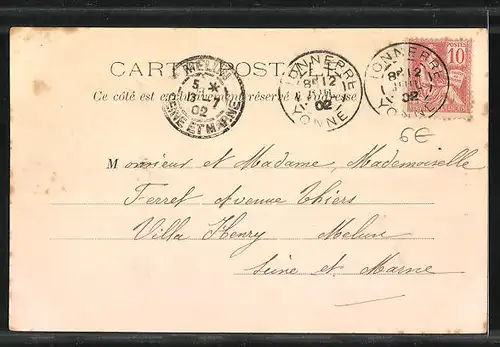 CARTE POSTALE
Ce côté est exclusivement réservé à l'adresse
MELUN
5 *
13 -7
02
SEINE ET MARNE
TONNERRE
8E 12
JUIL
02
YONNE
TONNERRE
8E 12
JUIL
02
YONNE
POSTES
10
6€
Monsieur et Madame, Mademoiselle
Ferret Avenue Thiers
Villa Henry Melun
Seine et Marne